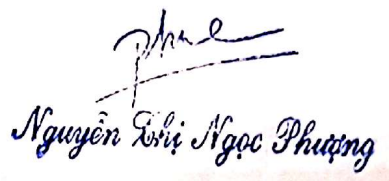 Nguyễn Thị Ngọc Phượng